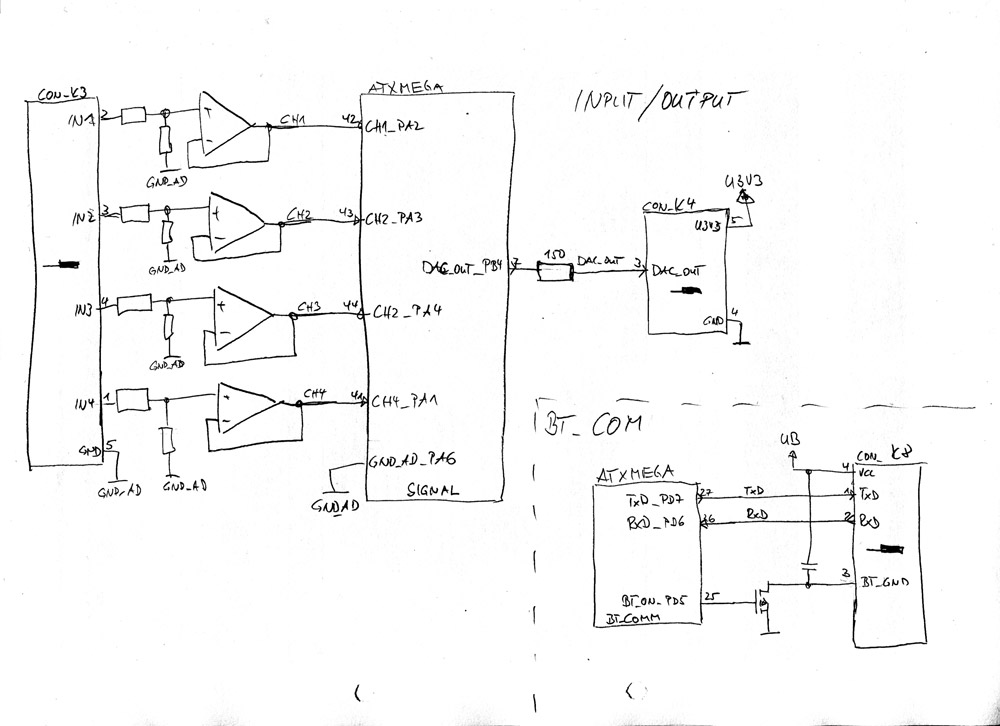 INPUT/OUTPUT
CON_K3
ATXMEGA
IN1 2
GND_AD
CH1 42 CH1_PA2
IN2 3
GND_AD
CH2 43 CH2_PA3
IN3 4
GND_AD
CH3 44 CH2_PA4
IN4 1
GND_AD
CH4 41 CH4_PA1
GND 5
GND_AD
GND_AD_PA6
GNDAD
SIGNAL
DAC_OUT_PB4 7 150 DAC_OUT 3 DAC_OUT
CON_K4
U3V3
U3V3 5
GND 4
BT_COM
UB
ATXMEGA
CON_K8
4 VCC
TxD_PD7 27 TxD TxD
RxD_PD6 26 RxD 2 RxD
BT_ON_PD5 25
BT_COMM
3 BT_GND